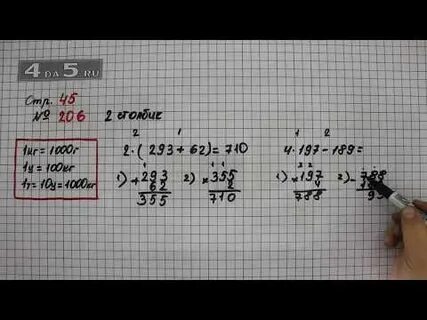 4 DA 5.RU
Стр. 45
№ 206 2 столбик
1кг = 1000г
1ц = 100кг
1т = 10ц = 1000кг
2 1
2·(293+62)=710
1) 1
+293
62
355
2) 1 1
×355
2
710
1 2
4·197-189=
1) 3 2
×197
4
788
2) -788